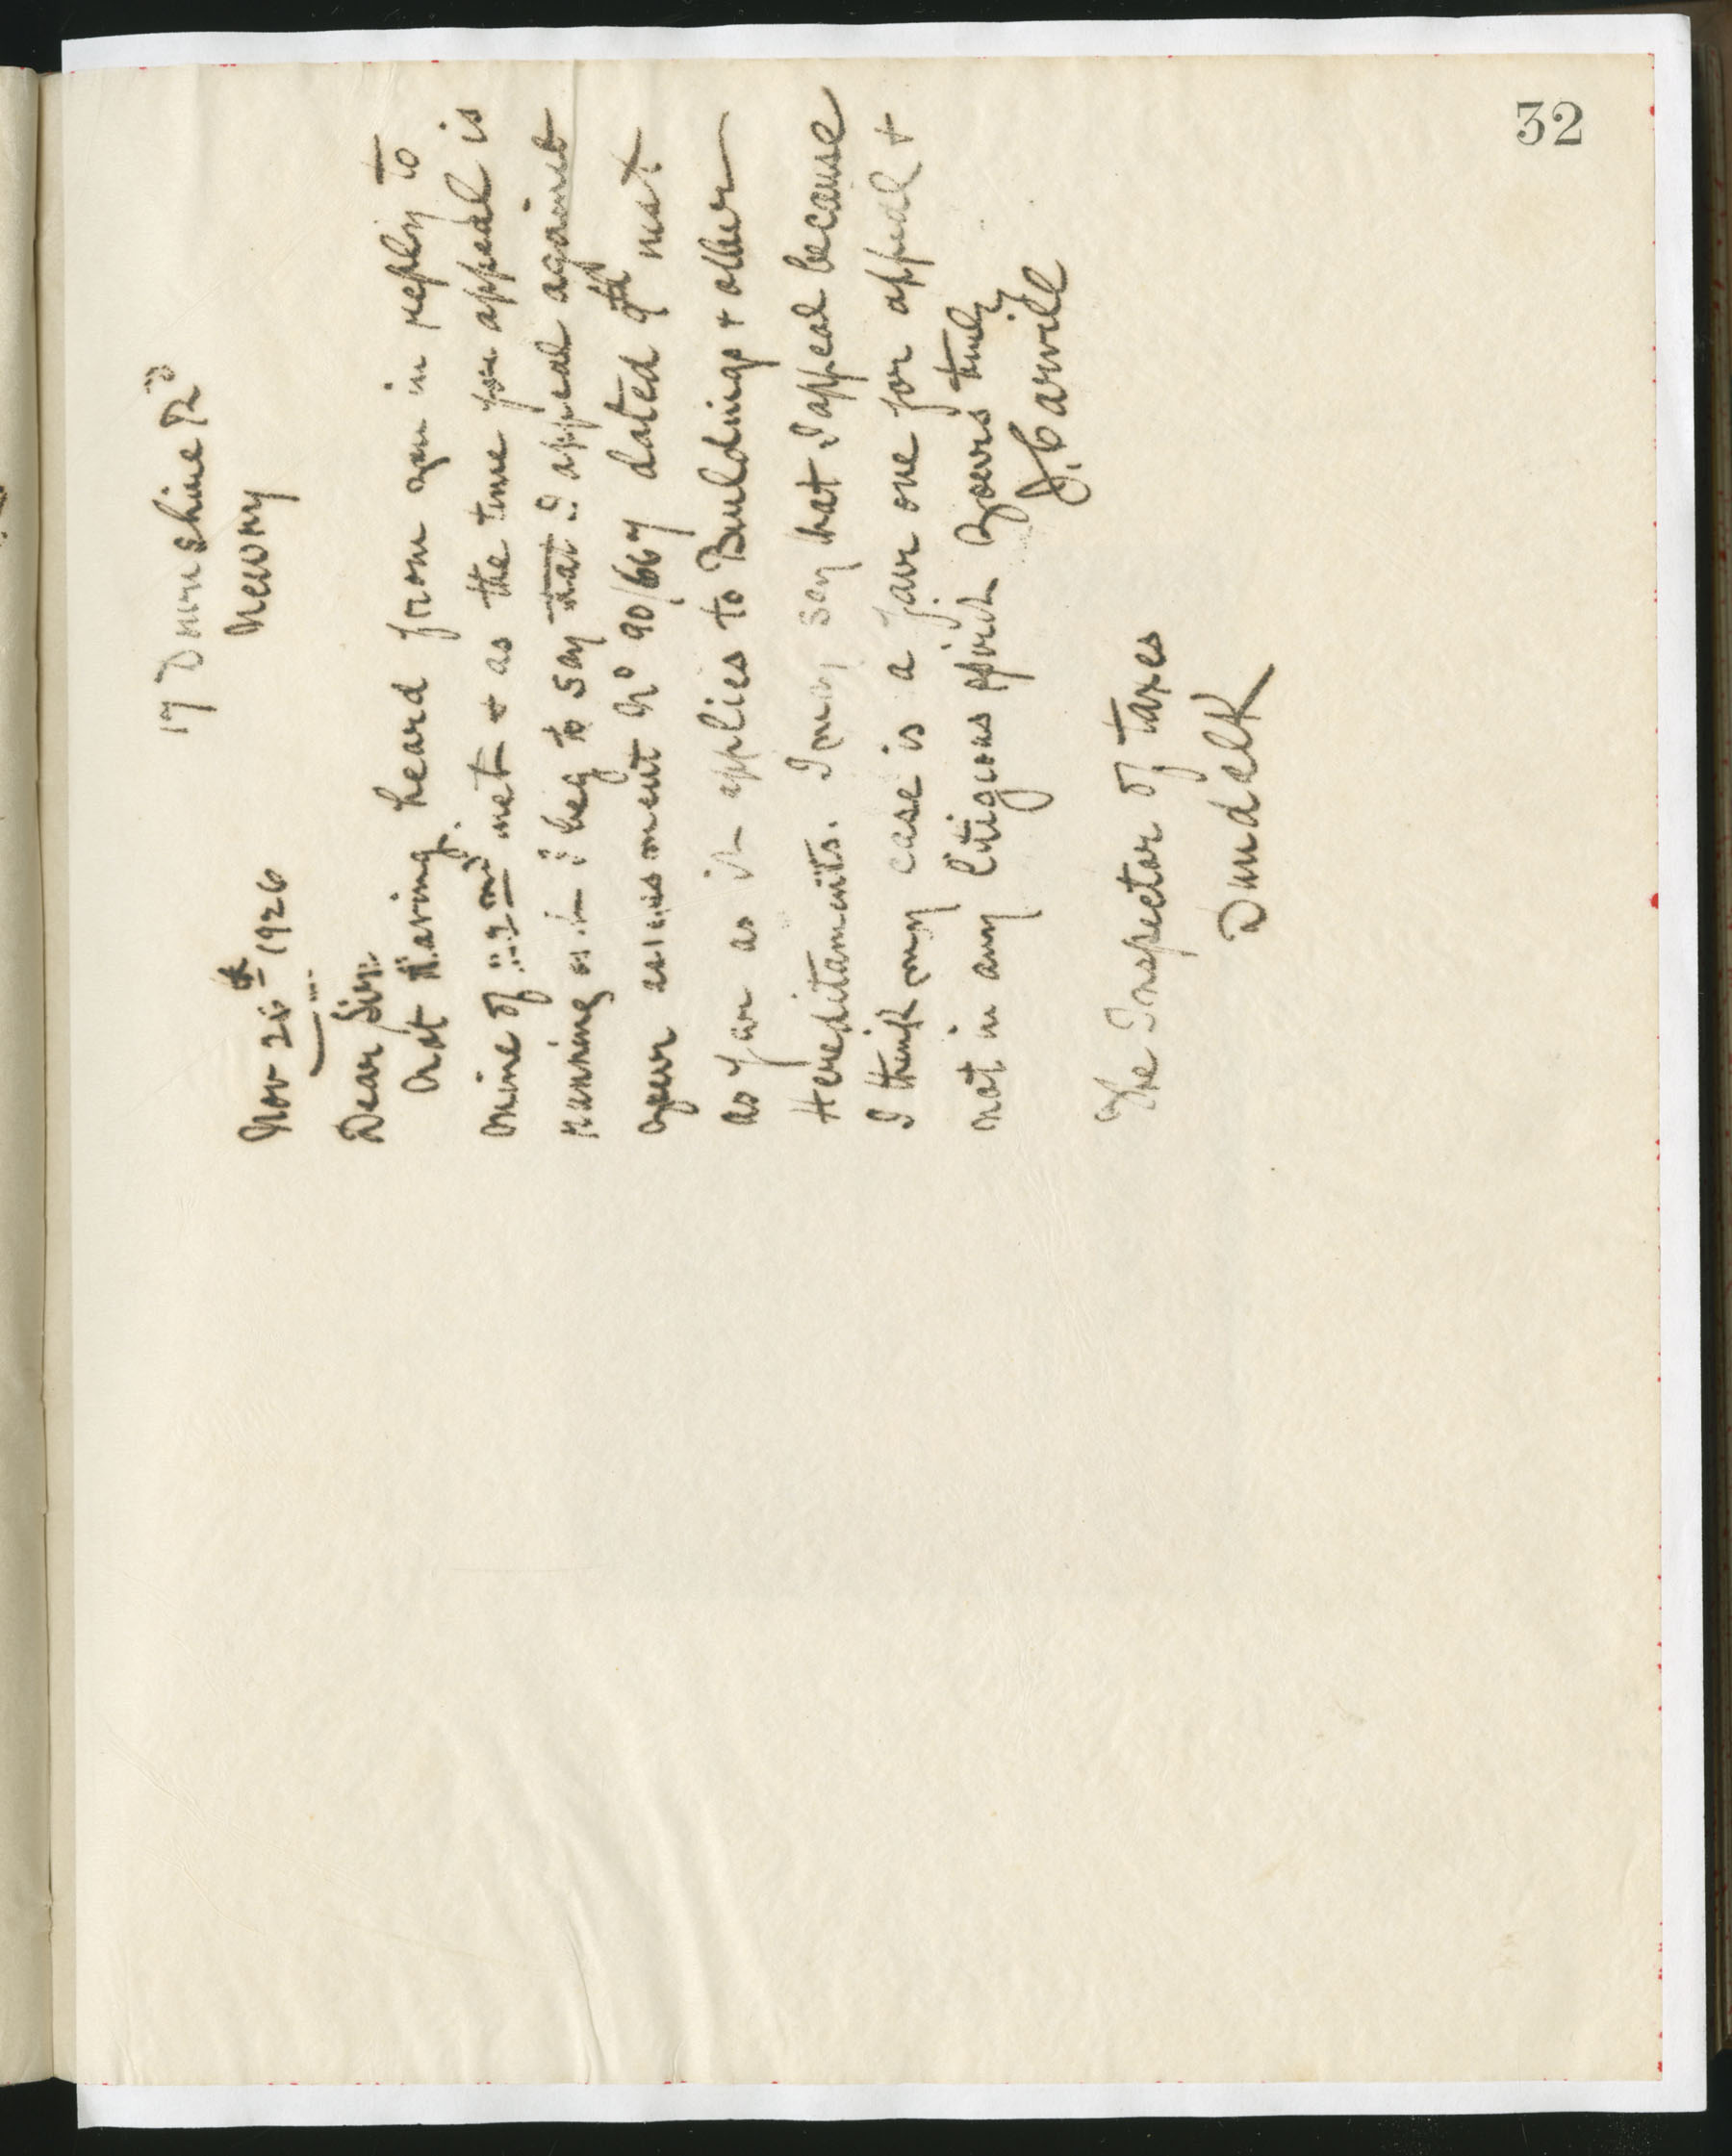 32
17 Dromshine Rd
Newry
Nov 26th 1926
Dear Sir:
Not Having heard from you in reply to
mine of 22nd inst + as the time for appeal is
running out I beg to say that I appeal against
your assessment No 90/667 dated 9th inst
as far as it applies to Buildings + other
Hereditaments. I may say that I appeal because
I think my case is a fair one for appeal +
not in any litigious spirit Yours truly
J. Carvill
The Inspector of Taxes
Dundalk